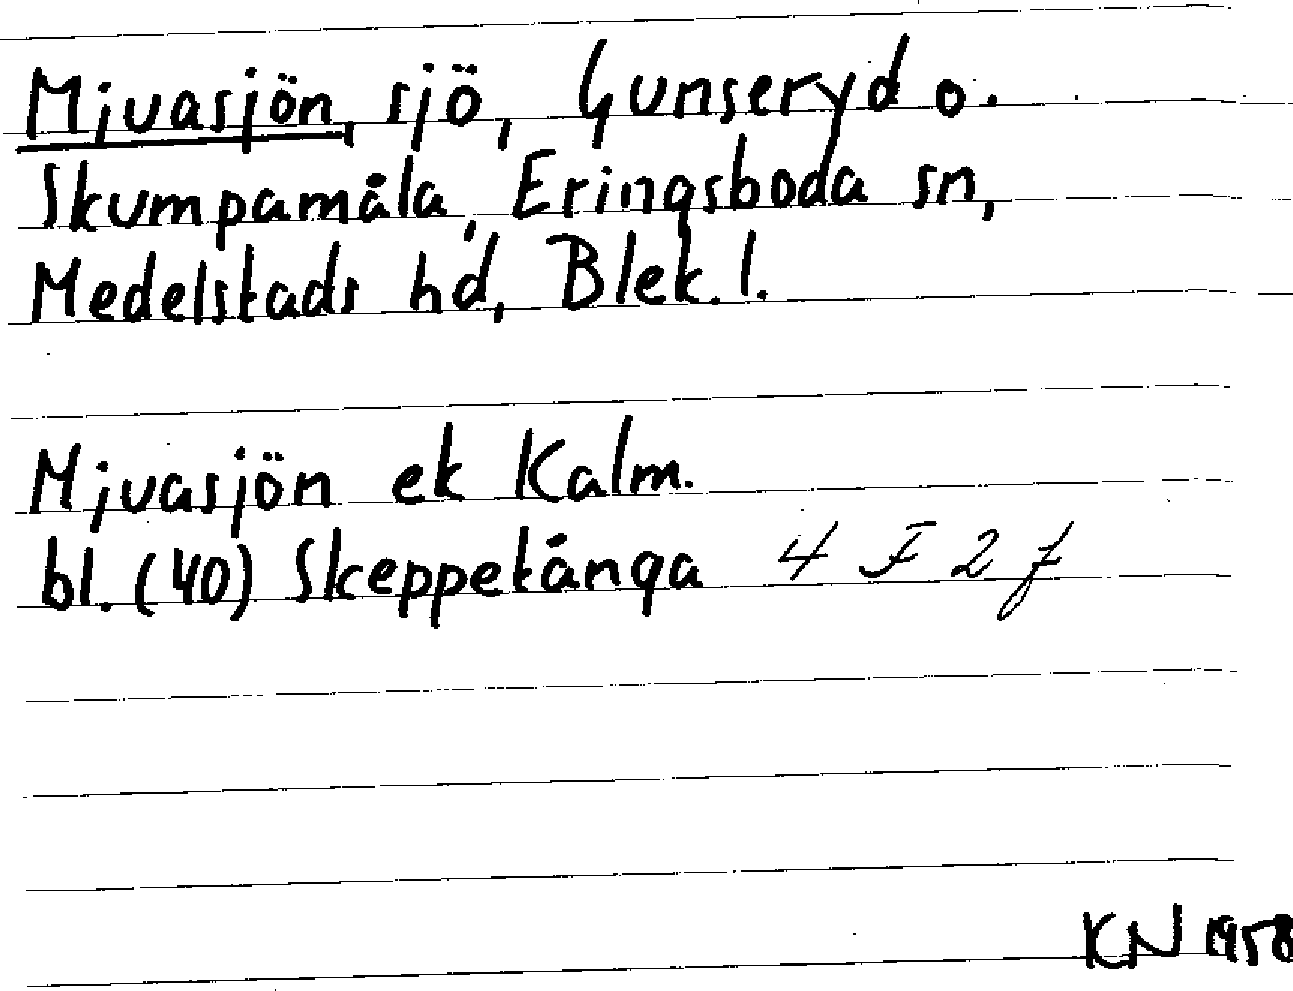 Mjuasjön, sjö, Gunseryd o.
Skumpamåla, Eringsboda sn,
Medelstads hd, Blek. l.
Mjuasjön ek Kalm.
bl. (40) Skeppetånga 4 F 2 f
KN 1958